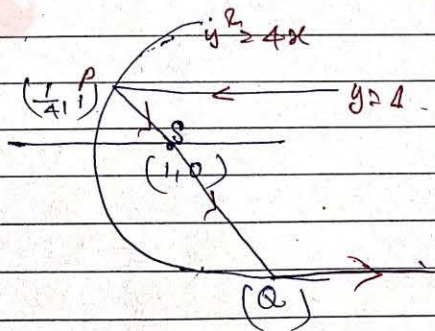 y² = 4x
P
(1/4, 1)
y = 1
S
(1, 0)
(Q)